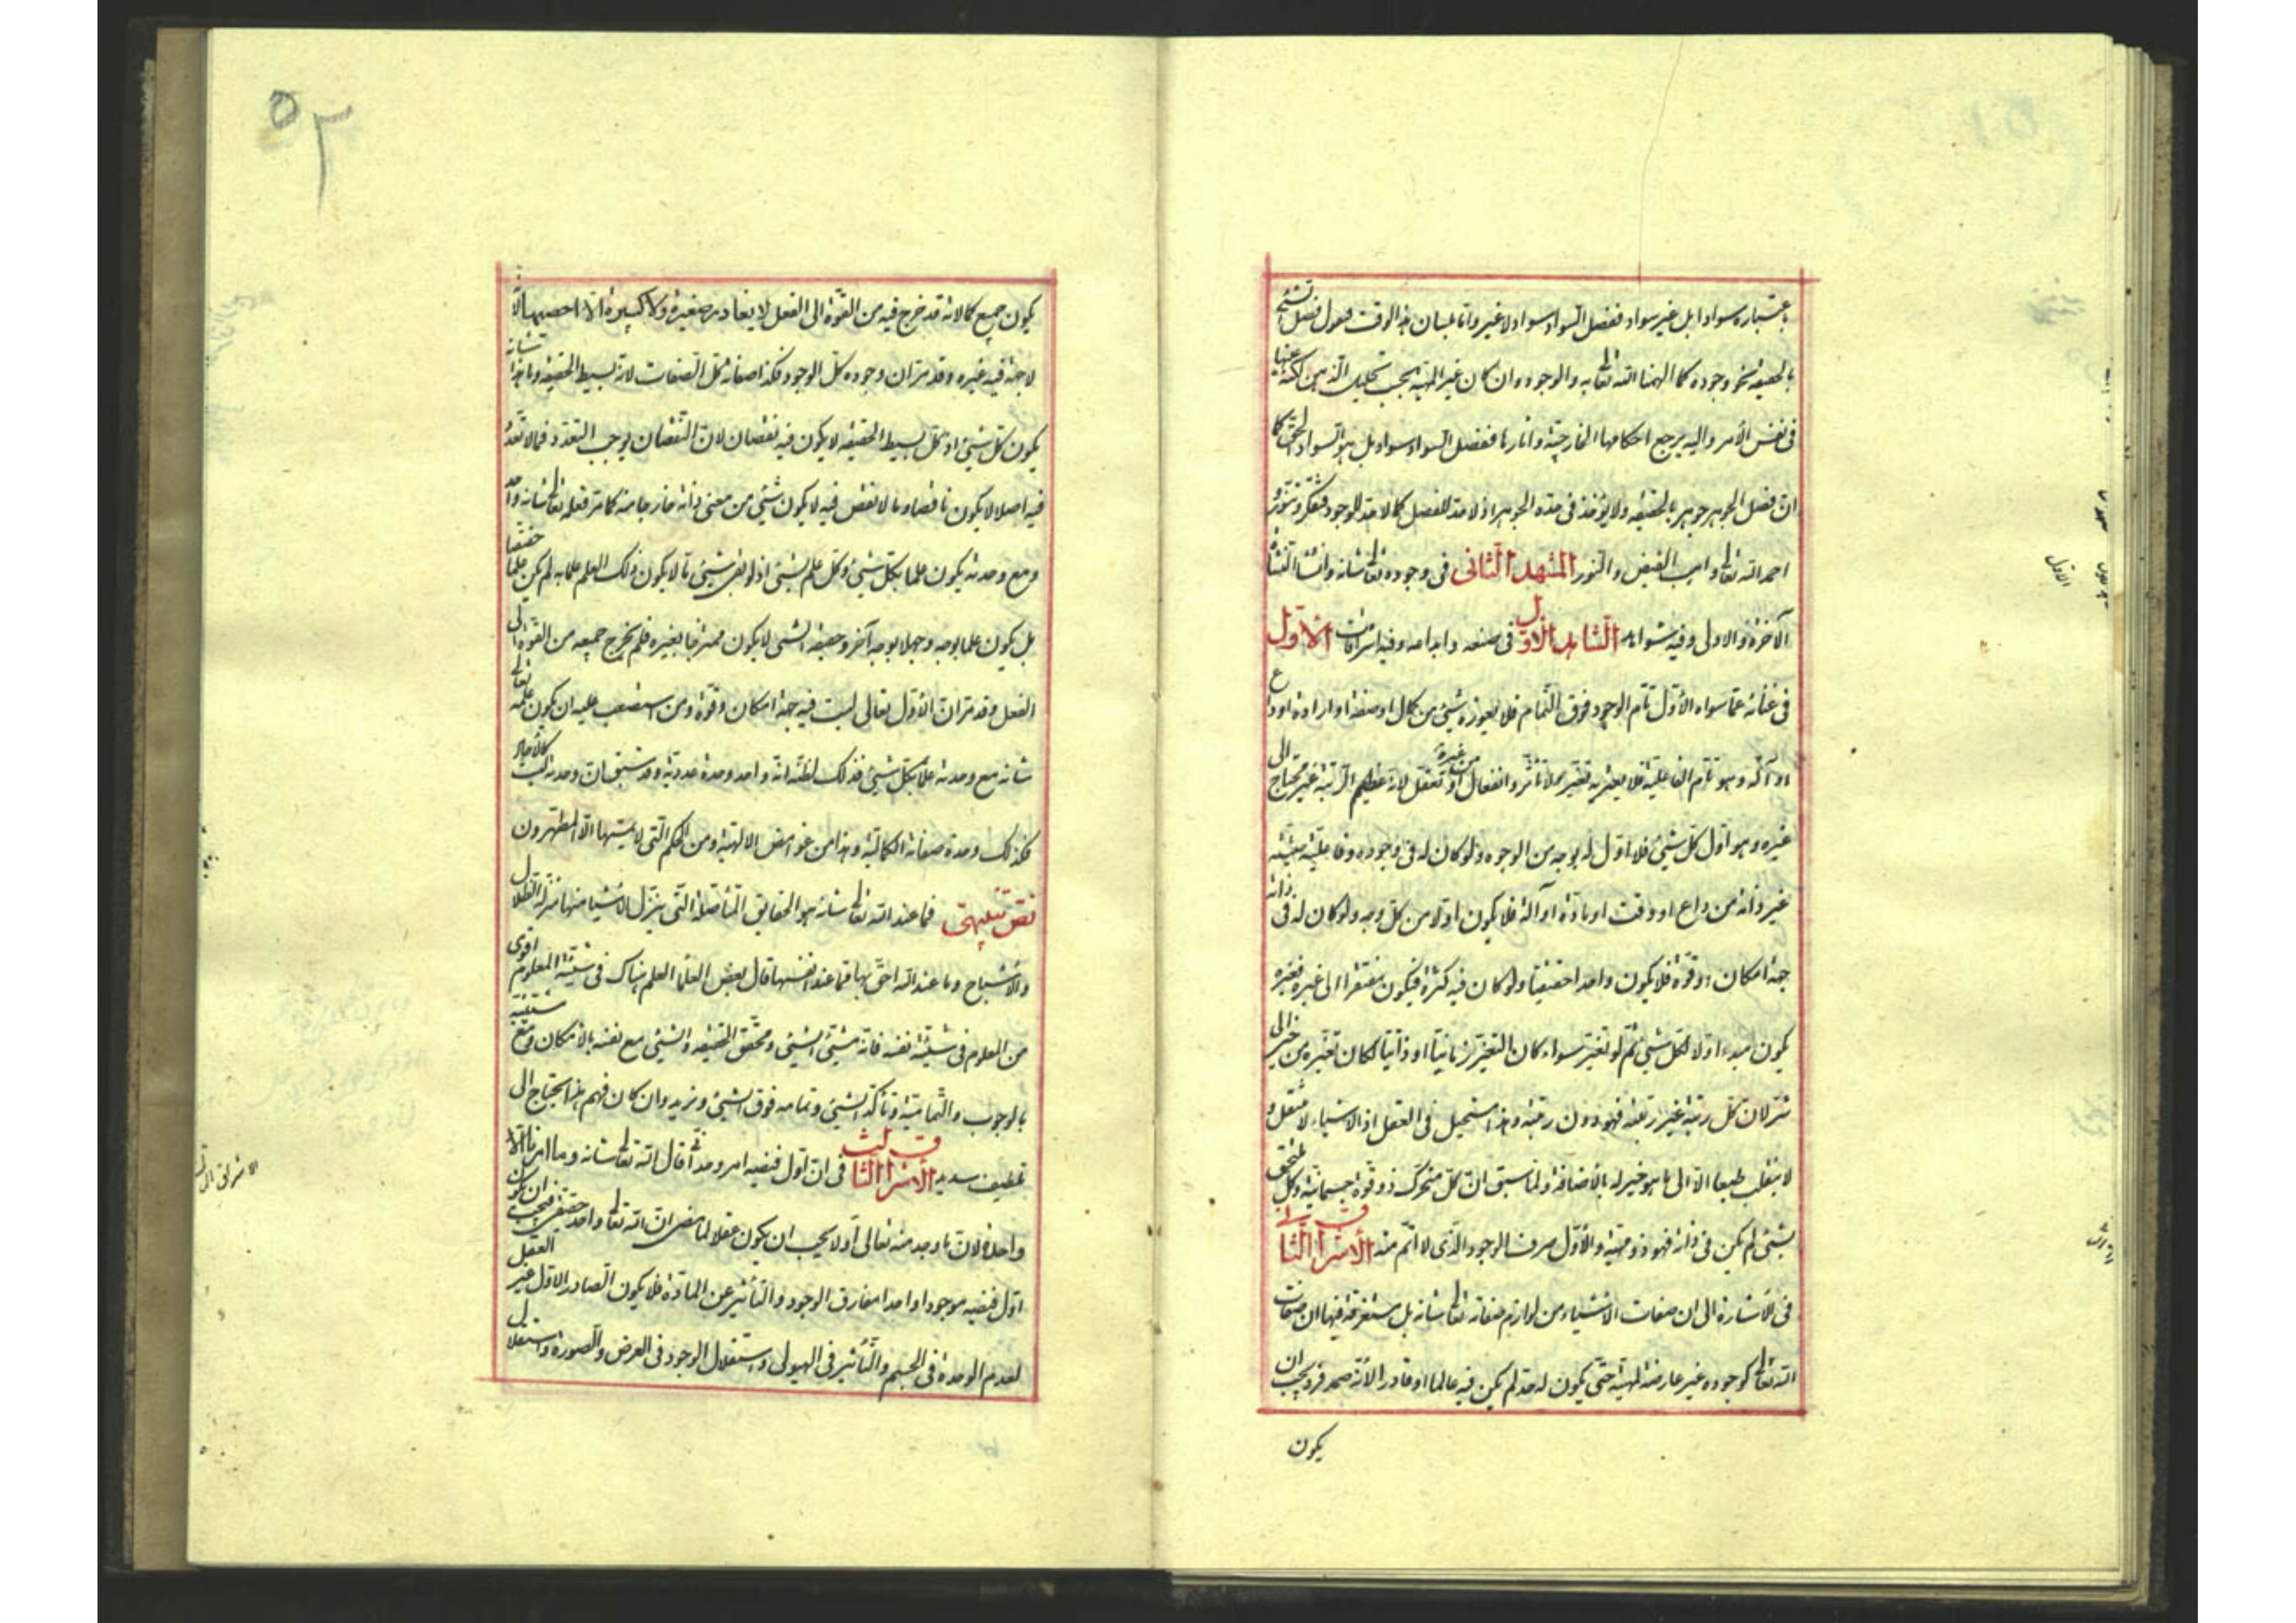 باعتباره سوادا بل غير سواد ففصل السواد سواد لا غير واما بلسان هذا الوقت فنقول فصل الشئ
بالحقيقة نحو وجوده كما الهمنا الله تعالى به والوجود وان كان غير المهية بحسب تحليل الذهن لكنه عينها
فى نفس الأمر واليه يرجع احكامها الخارجية وآثارها ففصل السواد سواد بل هو السواد الحق كما
ان فصل الجوهر جوهر بالحقيقه ولا يؤخذ فى حده الجوهر اذ لا حد للفصل كما لا حد للوجود فتفكر وتنور
احمد الله تعالى واهب الفيض والنور المشهد الثانى فى وجوده تعالى شانه وانشاء النشأة
الآخرة والاولى وفيه شواهد الشاهد الاول فى صنعه وابداعه وفيه اشراقات الاول
فى غنائه عما سواه الأول تام الوجود فوق التمام فلا يعوزه شئ من كمال او صفة او ارادة او داع
او آلة وهو تام الفاعلية فلا يعتريه تغير ولا تأثر وانفعال من غيره او تعقل لانه عظيم الرتبة غير محتاج الى
غيره وهو اول كل شئ فلا اول له بوجه من الوجوه ولو كان له فى وجوده وفاعليته حيثية
غير ذاته من داع او وقت او مادة او آلة فلا يكون اولا من كل وجه ولو كان له فى ذاته
جهة امكان او قوة فلا يكون واحدا حقيقيا ولو كان فيه كثرة فيكون مفتقرا الى غيره فغيره
يكون مبدء اولا لكل شئ ثم لو تغير سواء كان التغير زمانيا او ذاتيا لكان تغيره من خير الى
شر لان كل رتبة غير رتبته فهو دون رتبته وهذا مستحيل فى العقل اذ الاشياء لا تنتقل و
لا ينقلب طبعا الا الى ما هو خير له بالأضافة ولما سبق ان كل متحرك ذو قوة جسمانية وكل ملتحق
بشئ لم يكن فى ذاته فهو ذو مهية والأول صرف الوجود الذى لا اتم منه الأشراق الثانى
فى الأشارة الى ان صفات الاشياء من لوازم صفاته تعالى شانه بل مستغرقة فيها ان صفات
الله تعالى كوجوده غير عارضة لمهية حتى يكون له حد لم يكن فيه عالما او قادرا لأنه صمد فرد يجب ان
يكون
٥٢
يكون جميع كمالاته قد خرج فيه من القوة الى الفعل لا يغادر صغيرة ولا كبيرة الا احصيها لأنه
لا جهة فيه غيره وقد مر ان وجوده كل الوجود فكذا صفاته كل الصفات لانه بسيط الحقيقه وما هذا شانه
يكون كل شئ اذ كل بسيط الحقيقه لا يكون فيه نقصان لان النقصان يوجب التعدد فما لا تعدد
فيه اصلا لا يكون ناقصا وما لا نقص فيه لا يكون شئ من معنى ذاته خارجا منه كما مر فعلمه تعالى شانه واحد
ومع وحدته يكون علما بكل شئ وكل علم لشئ اذ لو بقى شئ ما لا يكون ذلك العلم علما به لم يكن علما حقيقيا
بل يكون علما بوجه وجهلا بوجه آخر وحقيقة الشئ لا يكون ممتزجا بغيره فلم يخرج جميعه من القوة الى
الفعل وقد مر ان الأول تعالى ليست فيه جهة امكان وقوة ومن استصعب عليه ان يكون علمه تعالى
شانه مع وحدته علما بكل شئ فذلك لظنه انه واحد وحدة عددية وقد سبق ان وحدته ليست كالآحاد
فكذلك وحدة صفاته الكمالية وهذا من غوامض الالهية ومن الحكم التى لا يمسها الا المطهرون
نقض تنبيهى فما عند الله تعالى شانه هو الحقايق المتأصلة التى ينزل الأشياء منها منزلة الظلال
والأشباح وما عند الله احق بها مما عند انفسها قال بعض العلماء العلم هناك فى شيئية المعلوم اقوى
من المعلوم فى شيئية نفسه فانه مشيئ الشئ ومحقق الحقيقه والشئ مع نفسه بالامكان ومع مشيئه
بالوجوب والتمامية وتأكد الشئ وتمامه فوق الشئ ويزيد وان كان فهم هذا يحتاج الى
تلطيف شديد الأشراق الثالث فى ان اول فيضه امر وحدانى قال الله تعالى شانه وما امرنا الا
واحدة لان ما وجد منه تعالى اولا يجب ان يكون عقلا لما مضى ان الله تعالى واحد حقيقى فيجب ان يكون
اول فيضه موجودا واحدا مفارق الوجود والتأثير عن المادة فلا يكون الصادر الاول غير العقل
لعدم الوحدة فى الجسم والتأثير فى الهيولى واستقلال الوجود فى العرض والصورة واستقلال